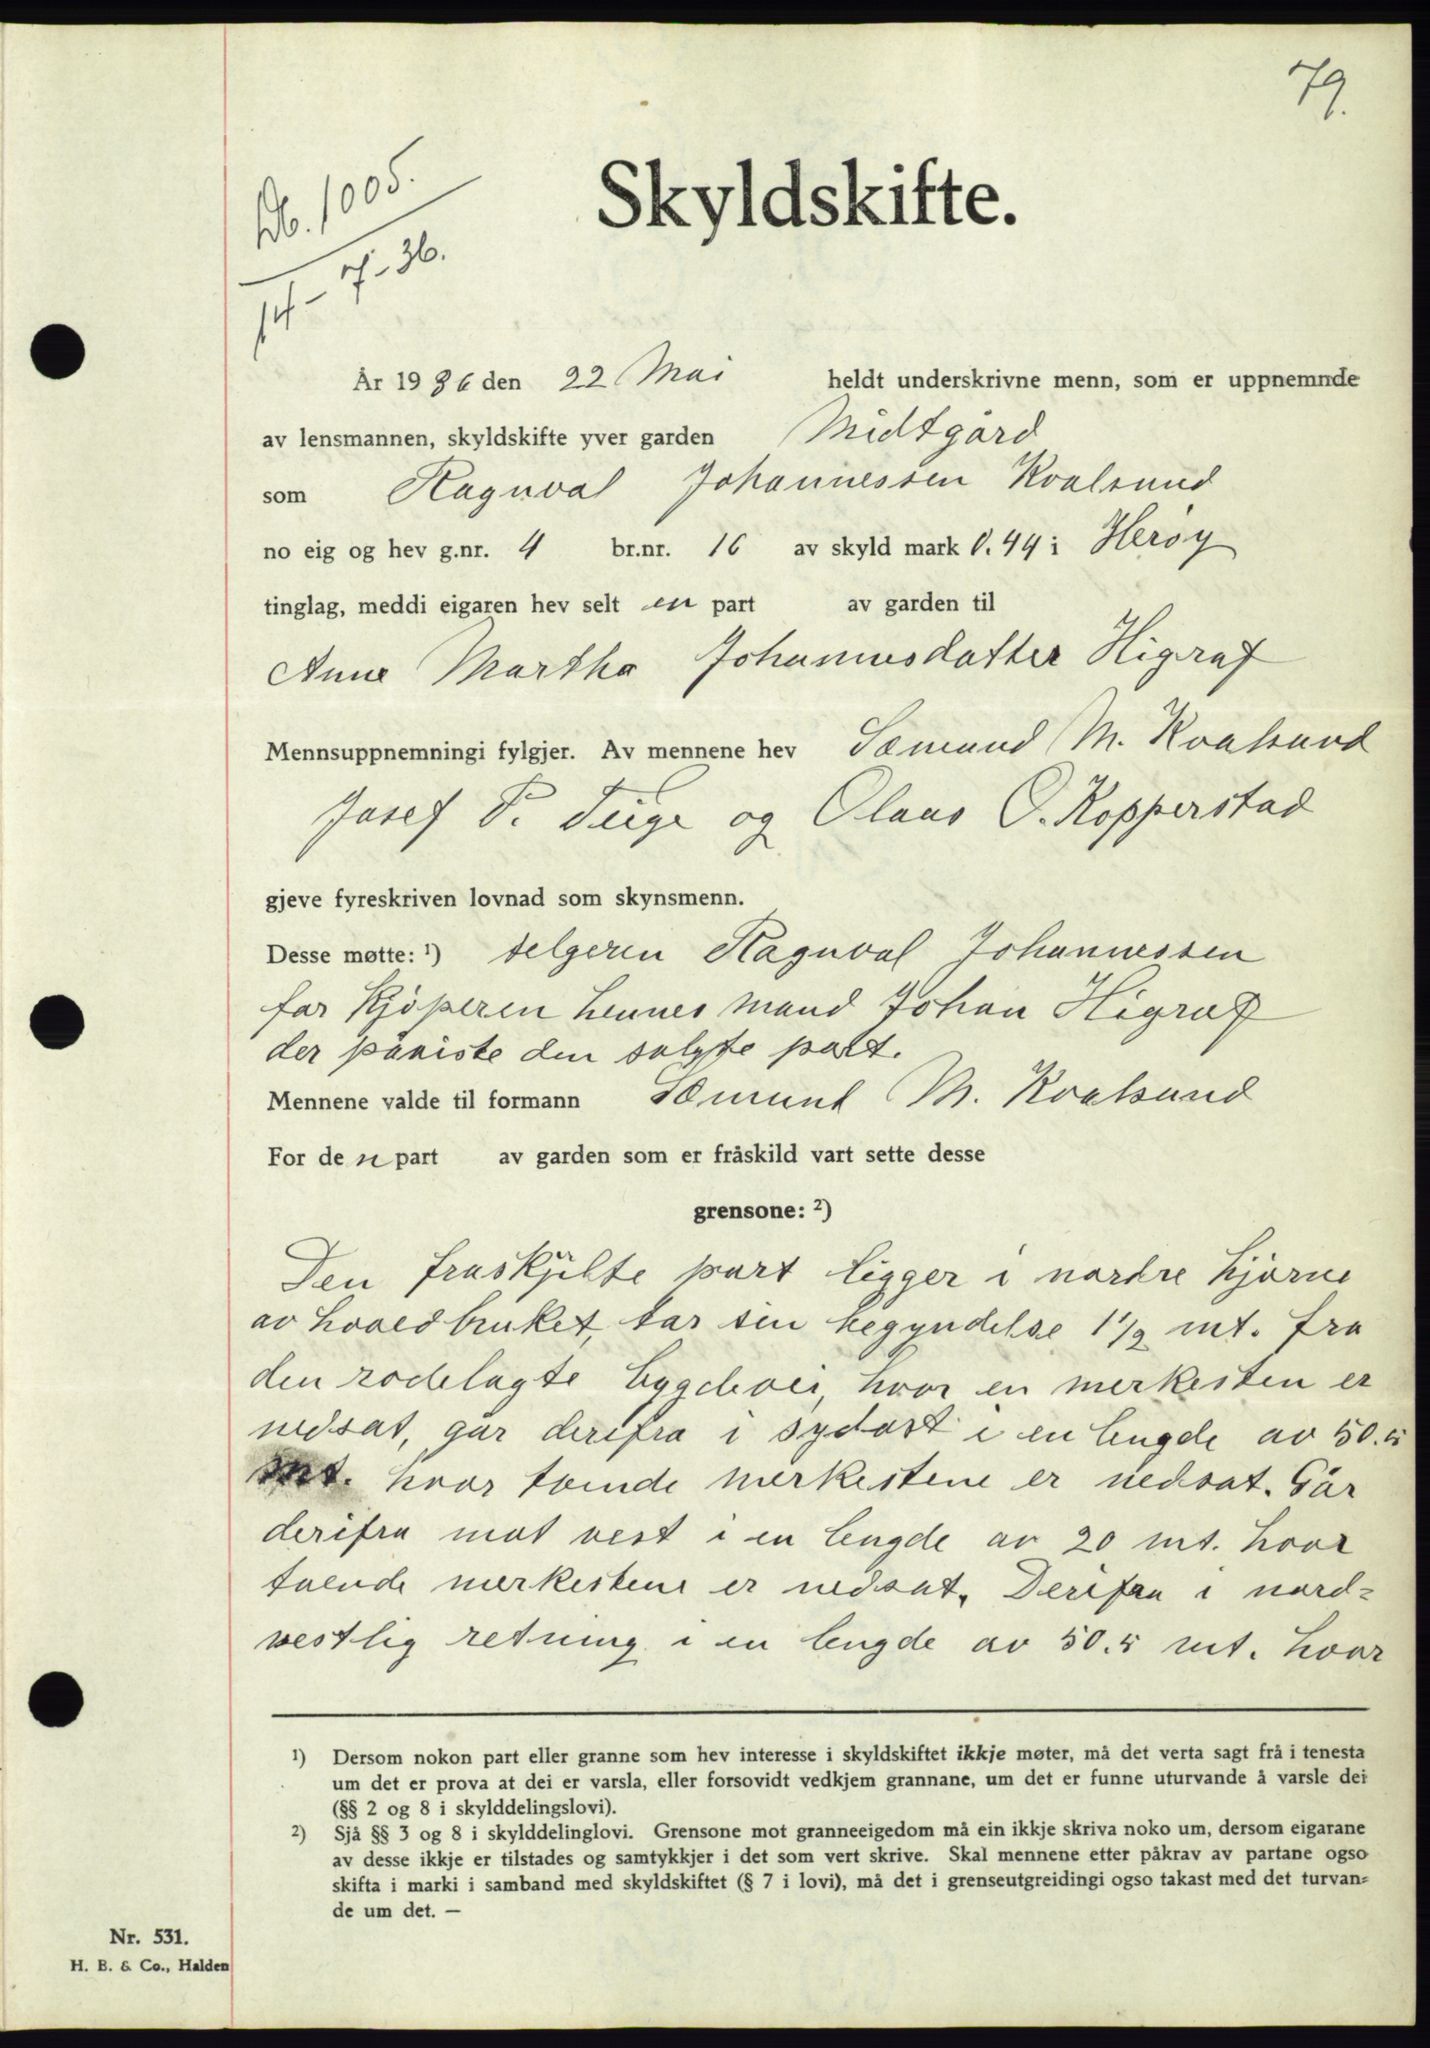 79.
Db. 1005.
14 - 7 - 36.
Skyldskifte.
År 1936 den 22 Mai heldt underskrivne menn, som er uppnemnde
av lensmannen, skyldskifte yver garden Midtgård
som Ragnval Johannessen Kvalsund
no eig og hev g.nr. 4 br.nr. 16 av skyld mark 0.44 i Herøy
tinglag, meddi eigaren hev selt en part av garden til
Anne Martha Johannesdatter Higraf
Mennsuppnemningi fylgjer. Av mennene hev Sæmund M. Kvalsund
Josef P. Teige og Olaus O. Kopperstad
gjeve fyreskriven lovnad som skynsmenn.
Desse møtte: ¹) selgeren Ragnval Johannessen
for kjøperen hennes mand Johan Higraf
der påviste den solgte part.
Mennene valde til formann Sæmund M. Kvalsund
For de n part av garden som er fråskild vart sette desse
grensone: ²)
Den fraskjilte part ligger i nordre hjørne
av hovedbruket, tar sin begyndelse 1½ mt. fra
den rodelagte bygdevei, hvor en merkesten er
nedsat, går derifra i sydøst i en lengde av 50.5
mt. hvor tvende merkestene er nedsat. Går
derifra mot vest i en lengde av 20 mt. hvor
tvende merkestene er nedsat. Derifra i nord=
vestlig retning i en lengde av 50.5 mt. hvor
¹) Dersom nokon part eller granne som hev interesse i skyldskiftet ikkje møter, må det verta sagt frå i tenesta
um det er prova at dei er varsla, eller forsovidt vedkjem grannane, um det er funne uturvande å varsle dei
(§§ 2 og 8 i skylddelingslovi).
²) Sjå §§ 3 og 8 i skylddelinglovi. Grensone mot granneeigedom må ein ikkje skriva noko um, dersom eigarane
av desse ikkje er tilstades og samtykkjer i det som vert skrive. Skal mennene etter påkrav av partane ogso
skifta i marki i samband med skyldskiftet (§ 7 i lovi), må det i grenseutgreidingi ogso takast med det turvan=
de um det. —
Nr. 531.
H. B. & Co., Halden